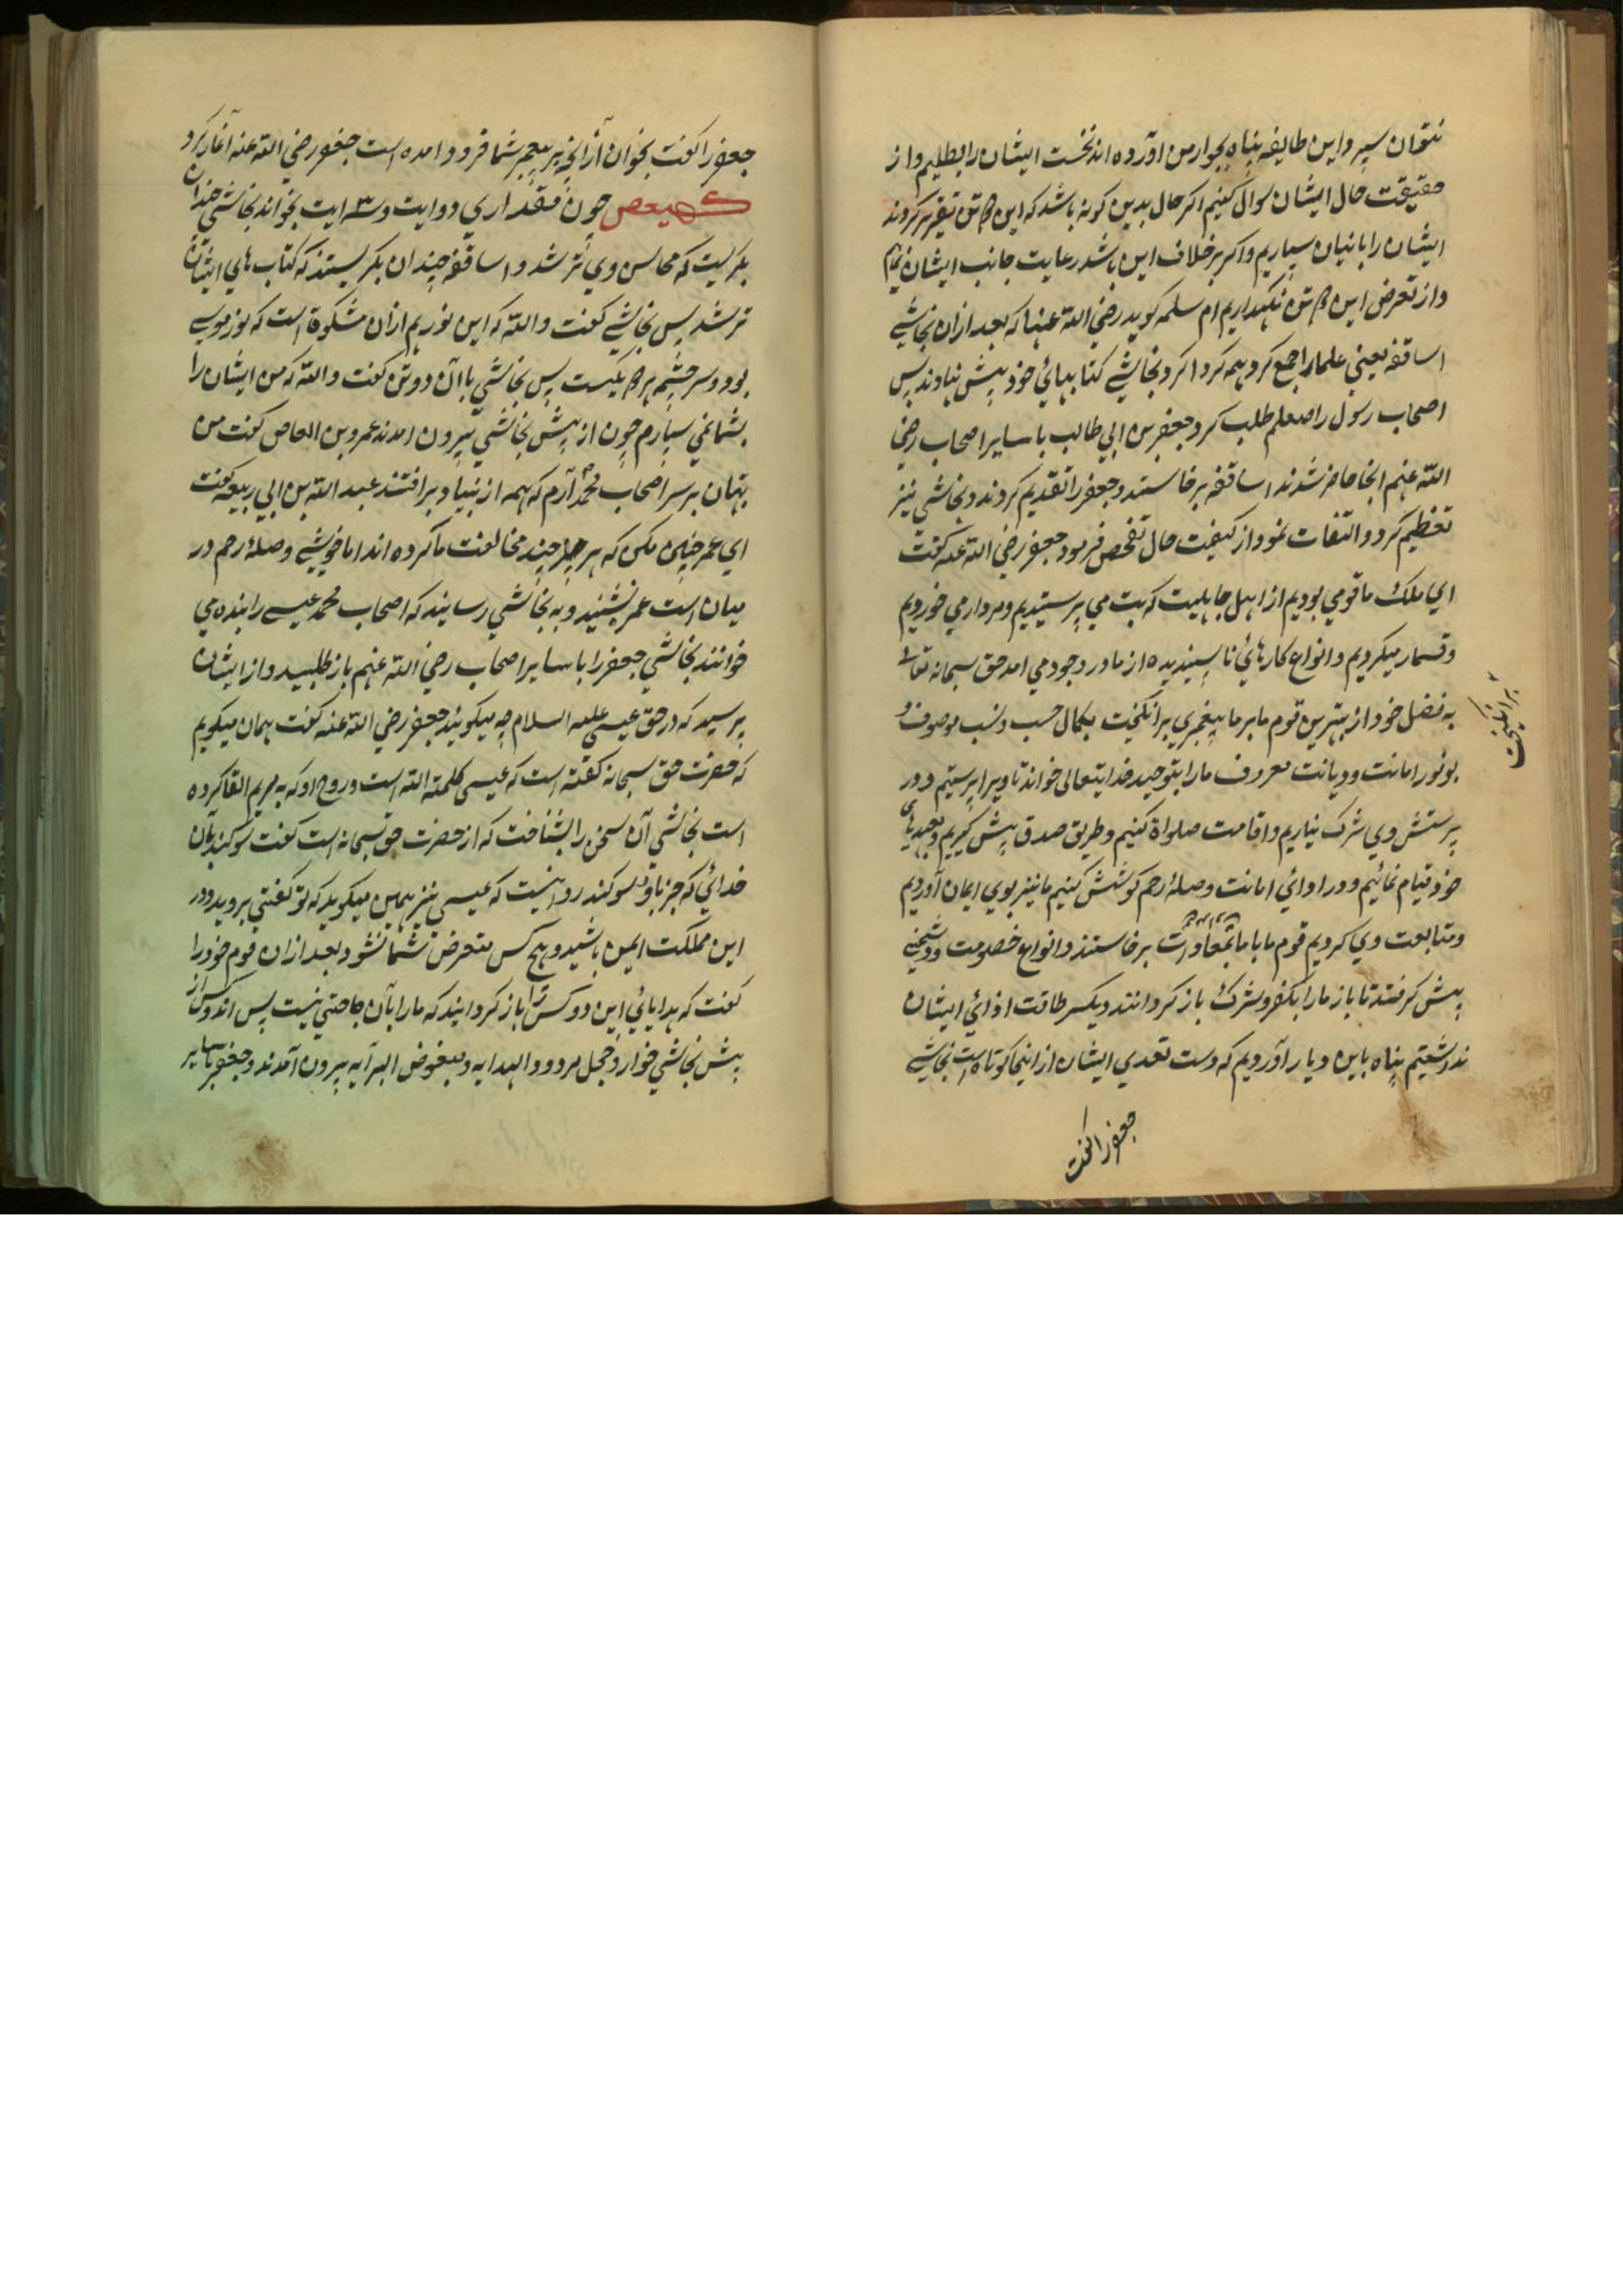 نتوان سپرد این طایفه پناه بجوار من اورده اند نخست ایشان را بطلبیم و از
حقیقت حال ایشان سوال کنیم اکر حال بدین کونه باشد که این دو تن تقریر کردند
ایشان را باینان سپاریم و اکر بر خلاف این باشد رعایت جانب ایشان نمایم
و از تعرض این دو تن نکهداریم ام سلمه کوید رضی الله عنها که بعد ازان نجاشی
اساقفه یعنی علما را جمع کرد همه کرد اکرد نجاشی کتابهائی خود پیش نهادند پس
اصحاب رسول را صلعلم طلب کرد جعفر بن ابی طالب با سایر اصحاب رضی
الله عنهم انجا حاضر شدند اساقفه برخاستند و جعفر را تقدیم کردند و نجاشی نیز
تعظیم کرد و التفات نمود از کیفیت حال تفحص فرمود جعفر رضی الله عنه کفت
ای ملک ما قومی بودیم از اهل جاهلیت که بت می پرستیدیم و مردار می خوردیم
و قمار میکردیم و انواع کارهائی ناپسندیده از ما در وجود می امد حق سبحانه تعالی
به فضل خود از بهترین قوم ما بر ما پیغمبری برانکیخت بکمال حسب و نسب موصوف و
بوفور امانت و دیانت معروف ما را بتوحید خدایتعالی خواند تا ویرا پرستیم و در
پرستش وی شرک نیاریم و اقامت صلواة کنیم و طریق صدق پیش کیریم و بعهدهای
خود قیام نمائیم و در ادائی امانت و صلهٔ رحم کوشش کنیم ما نیز بوی ایمان آوردیم
و متابعت وی کردیم قوم ما با ما بمعاورت برخاستند و انواع خصومت و دشمنی
پیش کرفتند تا باز ما را بکفر و شرک باز کردانند دیکر طاقت اذائی ایشان
نداشتیم پناه باین دیار آوردیم که دست تعدی ایشان از اینجا کوتاه است نجاشی
برانکیخت
جعفر را کفت
جعفر را کفت بخوان آز انچه بر پیغمبر شما فرود امده است جعفر رضی الله عنه آغاز کرد
کهیعص چون مقداری دو ایت و سه ایت بخواند نجاشی چندان
بکریست که محاسن وی تر شد و اساقفه چندان بکریستند که کتاب های ایشان
تر شد پس نجاشی کفت والله که این نور هم ازان مشکوة است که نور موسی
بود و سرچشمه هر دو یکیست پس نجاشی با ان دو تن کفت والله که من ایشان را
بشما نمی سپارم چون از پیش نجاشی بیرون امدند عمرو بن العاص کفت من
بهتان بر سر اصحاب محمد آرم که همه از بنیاد برافتند عبد الله بن ابی ربیعه کفت
ای عمر چنین مکن که هر چند مخالفت ما کرده اند اما خویشی و صلهٔ رحم در
میان است عمر نشنید و به نجاشی رسانید که اصحاب محمد عیسی را بنده می
خوانند نجاشی جعفر را با سایر اصحاب رضی الله عنهم باز طلبید و از ایشان
پرسید که در حق عیسی علیه السلام چه میکوئید جعفر رضی الله عنه کفت همان میکویم
که حضرت حق سبحانه کفته است که عیسی کلمة الله است و روح او که به مریم القا کرده
است نجاشی آن سخن را بشناخت که از حضرت حق سبحانه است کفت سوکند بآن
خدائی که جز باو سوکند روا نیست که عیسی نیز همین میکوید که تو کفتی بروید و در
این مملکت ایمن باشید و هیچ کس متعرض شما نشود بعد ازان قوم خود را
کفت که هدایائی این دو کس را باز کردانید که ما را بآن حاجتی نیست پس ان دو کس از
پیش نجاشی خوار و خجل مردود الهدایه و مبغوض البرآیه بیرون آمدند و جعفر با سایر